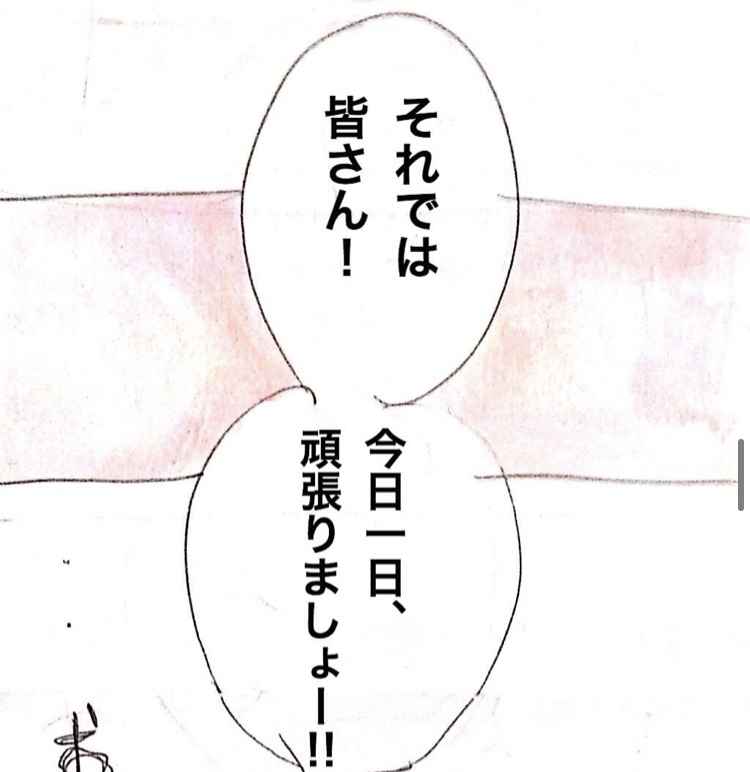 それでは
皆さん！
今日一日、
頑張りましょー!!
お